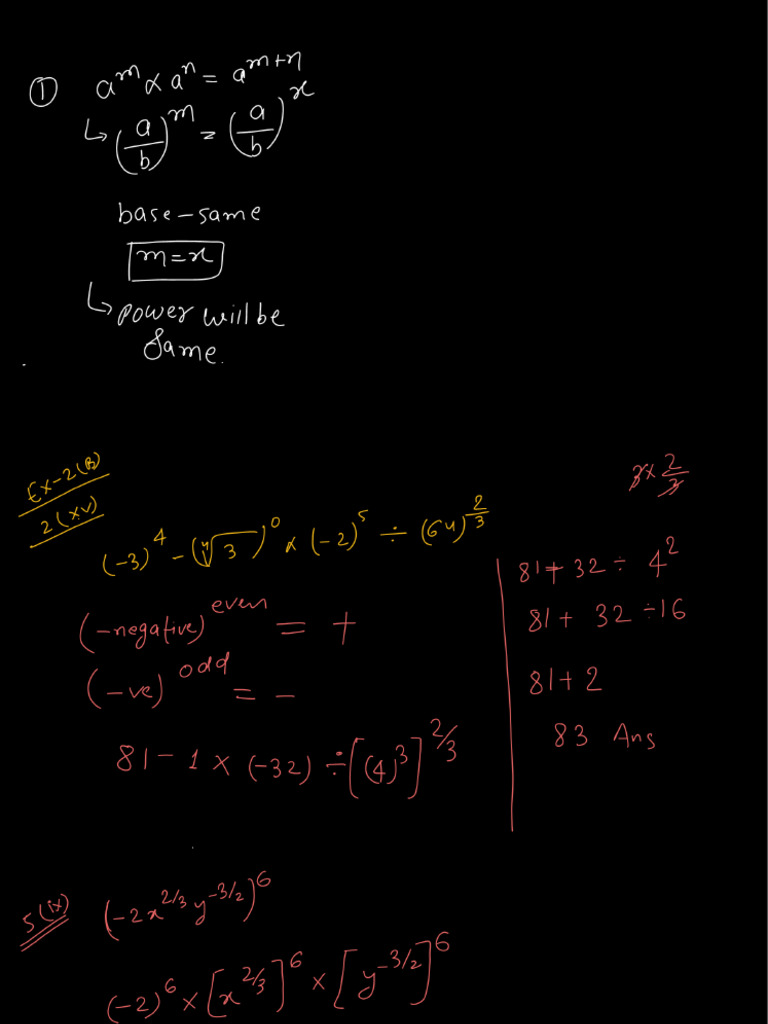 ① a^m × a^n = a^(m+n)
↳ (a/b)^m = (a/b)^x
base-same
m=x
↳ power will be
Same.
Ex-2(B)
2(xv)
(-3)^4 - (∜3)^0 × (-2)^5 ÷ (64)^(2/3)
(-negative)^even = +
(-ve)^odd = -
81 - 1 × (-32) ÷ [(4)^3]^(2/3)
3×2/3
81+ 32 ÷ 4^2
81+ 32 ÷16
81+2
83 Ans
5(ix) (-2x^(2/3) y^(-3/2))^6
(-2)^6 × [x^(2/3)]^6 × [y^(-3/2)]^6